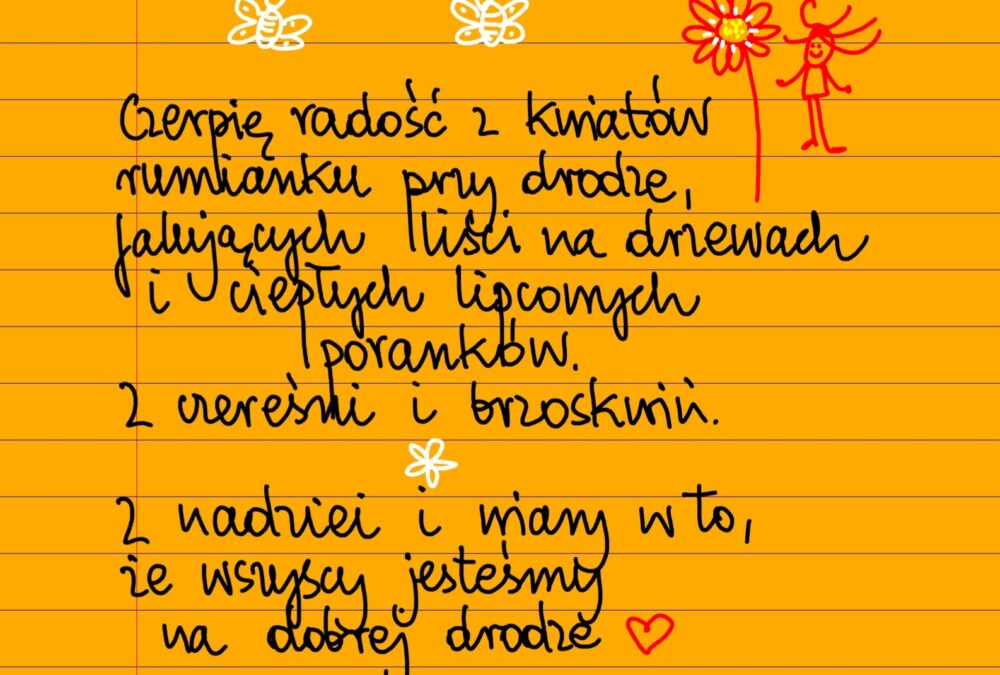 Czerpię radość z kwiatów
rumianku przy drodze,
falujących liści na drzewach
i ciepłych lipcowych
poranków.
Z czereśni i brzoskwiń.
Z nadziei i wiary w to,
że wszyscy jesteśmy
na dobrej drodze